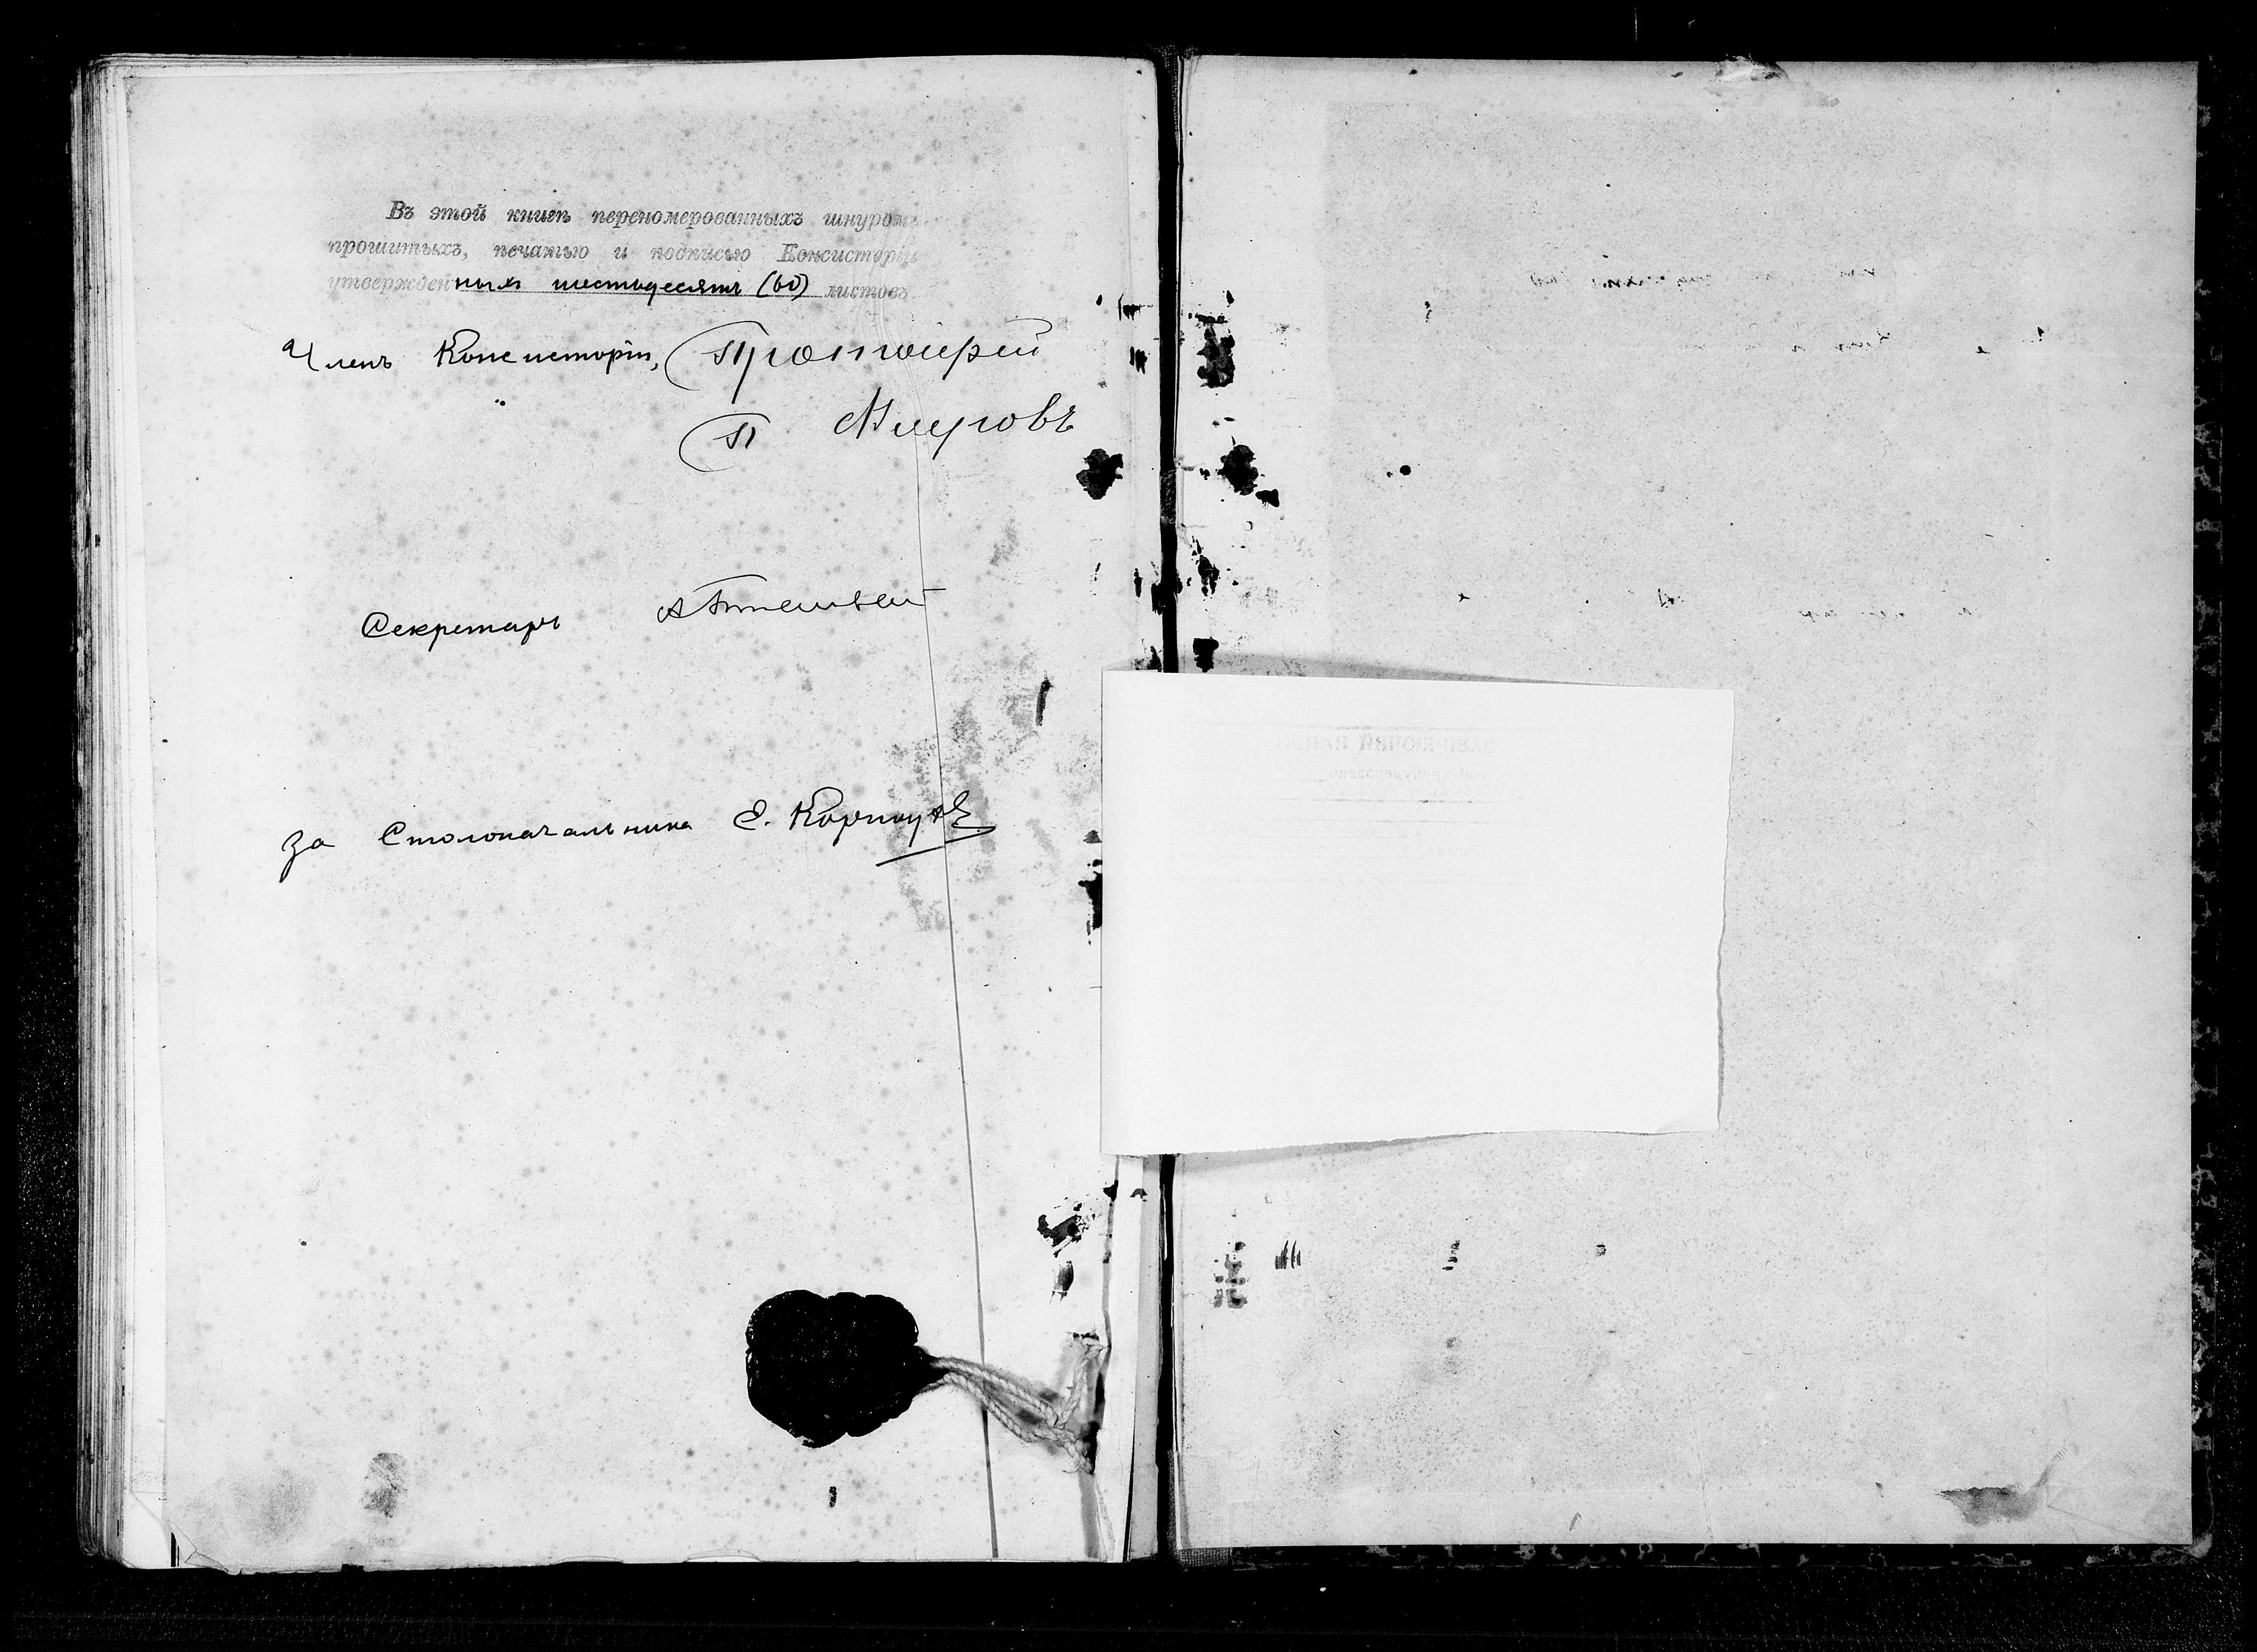 Въ этой книгѣ перено­мерованныхъ шнуромъ
прошитыхъ, печатью и подписью Консисторіи
утвержденныхъ шестьдесятъ (60) листовъ
Членъ Консисторіи, Протоіерей
П.
Секретарь
За Столоначальника Е.